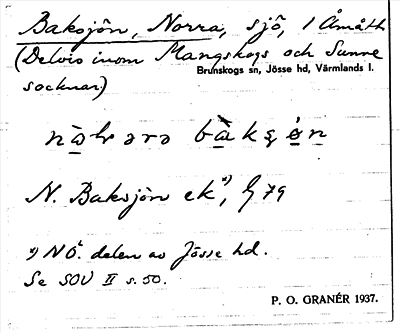 Baksjön, Norra, sjö, i Åmått
(Delvis inom Mangskogs och Sunne
Brunskogs sn, Jösse hd, Värmlands l.
socknar)
N. Baksjön ek*), G 79
*) NÖ. delen av Jösse hd.
Se SOV II s. 50.
P. O. GRANÉR 1937.